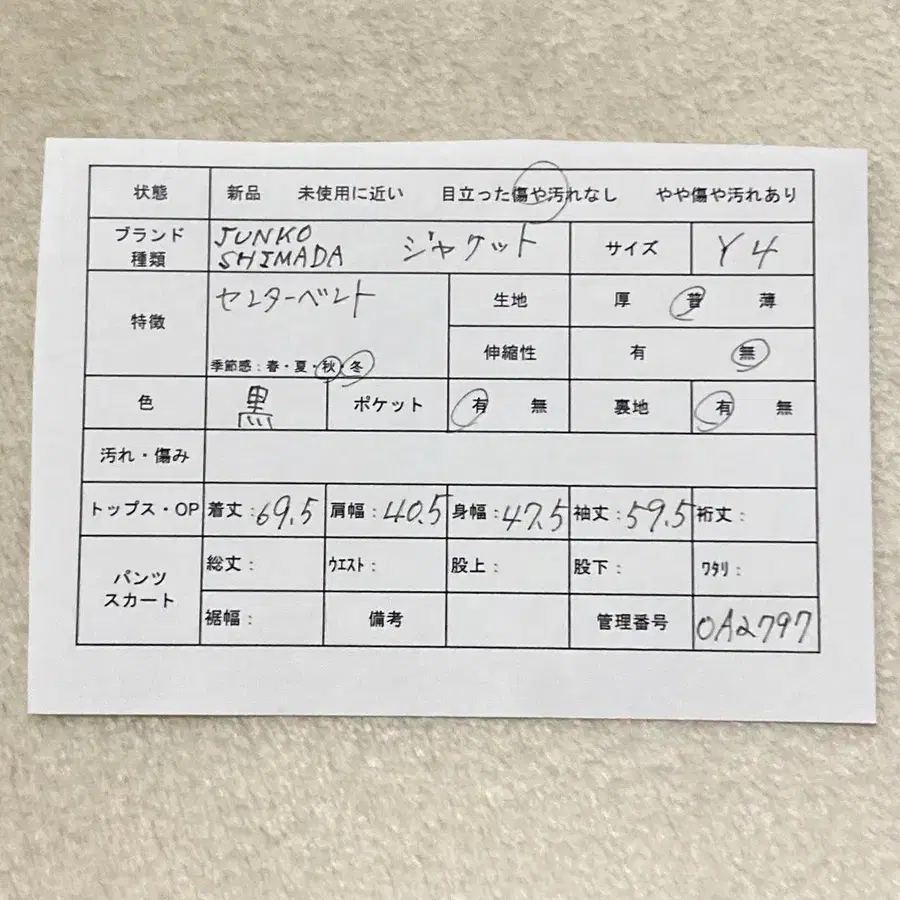 状態 新品 未使用に近い 目立った傷や汚れなし やや傷や汚れあり
ブランド 種類 JUNKO SHIMADA ジャケット サイズ Y4
特徴 センターベント 生地 厚 普 薄
季節感：春・夏・秋・冬 伸縮性 有 無
色 黒 ポケット 有 無 裏地 有 無
汚れ・傷み
トップス・OP 着丈：69.5 肩幅：40.5 身幅：47.5 袖丈：59.5 裄丈：
パンツ スカート 総丈： ウエスト： 股上： 股下： ワタリ：
裾幅： 備考 管理番号 OA2797